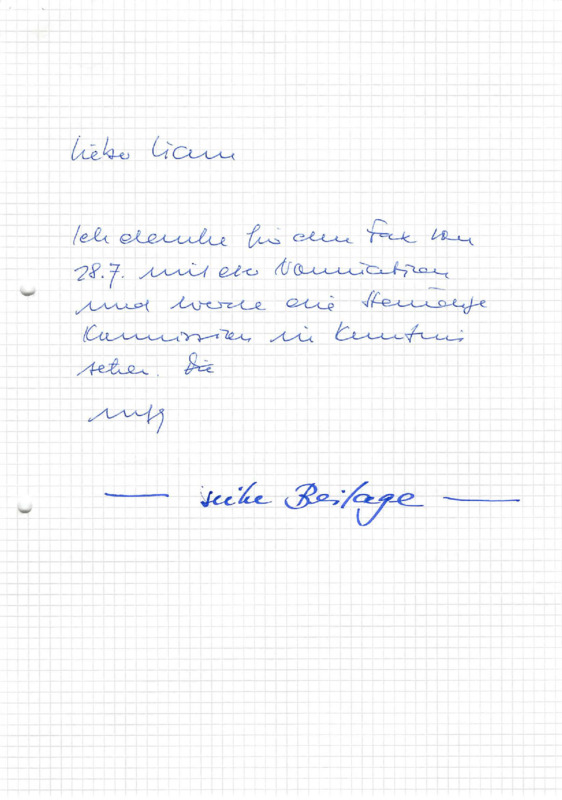 Lieber Liam
Ich danke für den Fax von
28.7. mit der Nomination
und werde die Ständige
Kommission in Kenntnis
setzen. Die
mfg
— siehe Beilage —